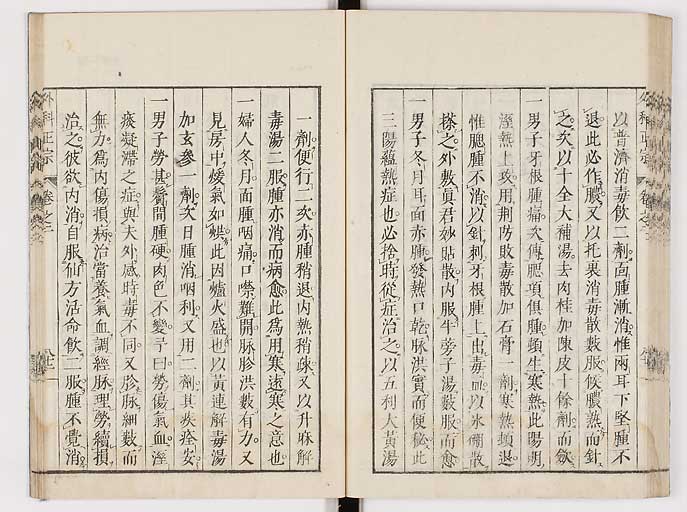 以普濟消毒飲二劑面腫漸消惟兩耳下堅腫不
退此必作膿又以托裏消毒散數服候膿熟而針
之次以十全大補湯去肉桂加陳皮十餘劑而歛
一男子牙根腫痛次傳腮項俱腫頓生寒熱此陽明
溼熱上攻用荆防敗毒散加石膏一劑寒熱頓退
惟腮腫不消以針刺牙根腫上出毒血以氷硼散
搽之外敷真君妙貼散內服牛蒡子湯數服而愈
一男子冬月耳面赤腫發熱口乾脉洪實而便秘此
三陽蘊熱症也必捨時從症治之以五利大黃湯
一劑便行二次赤腫稍退內熱稍疎又以升麻解
毒湯二服腫亦消而病愈此為用寒遠寒之意也
一婦人冬月面腫咽痛口噤難開脉胗洪數有力又
見房中煖氣如烘此因爐火盛也以黃連解毒湯
加玄參一劑次日腫消咽利又用二劑其疾痊安
一男子勞甚鬢間腫硬肉色不變予曰勞傷氣血溼
痰凝滯之症與夫外感時毒不同又胗脉細數而
無力為內傷損病治當養氣血調經脉理勞續損
治之彼欲內消自服仙方活命飲二服腫不覺消
外科正宗 卷之二
外科正宗 卷之二